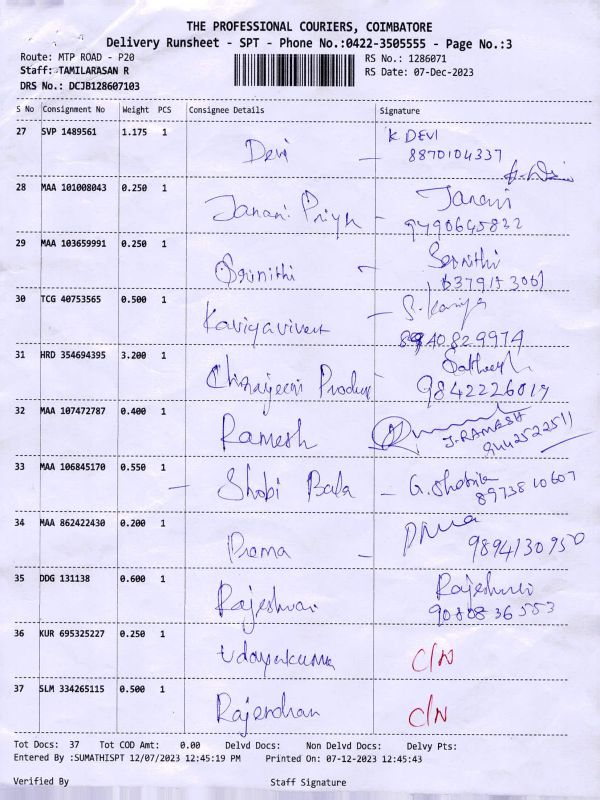 THE PROFESSIONAL COURIERS, COIMBATORE
Delivery Runsheet - SPT - Phone No.:0422-3505555 - Page No.:3
Route: MTP ROAD - P20 RS No.: 1286071
Staff: TAMILARASAN R RS Date: 07-Dec-2023
DRS No.: DCJB128607103
S No Consignment No Weight PCS Consignee Details Signature
27 SVP 1489561 1.175 1 Devi - K. DEVI
8870104337
28 MAA 101008043 0.250 1 Janani Priya - Janani
9790645832
29 MAA 103659991 0.250 1 Srinithi - Srinithi
30 TCG 40753565 0.500 1 Kaviyavivert - S. Kaviya
8940829974
31 HRD 354694395 3.200 1 Chiranjeevi Product
9842226019
32 MAA 107472787 0.400 1 Ramesh J. RAMESH
9442522511
33 MAA 106845170 0.550 1 - Shobi Bala - G. Shobika
8973810607
34 MAA 862422430 0.200 1 Prema -
9894130950
35 DDG 131138 0.600 1 Rajeshwari Rajeshwari
9080836553
36 KUR 695325227 0.250 1 Udayakumar C/N
37 SLM 334265115 0.500 1 Rajendran C/N
Tot Docs: 37 Tot COD Amt: 0.00 Delvd Docs: Non Delvd Docs: Delvy Pts:
Entered By :SUMATHISPT 12/07/2023 12:45:19 PM Printed On: 07-12-2023 12:45:43
Verified By Staff Signature